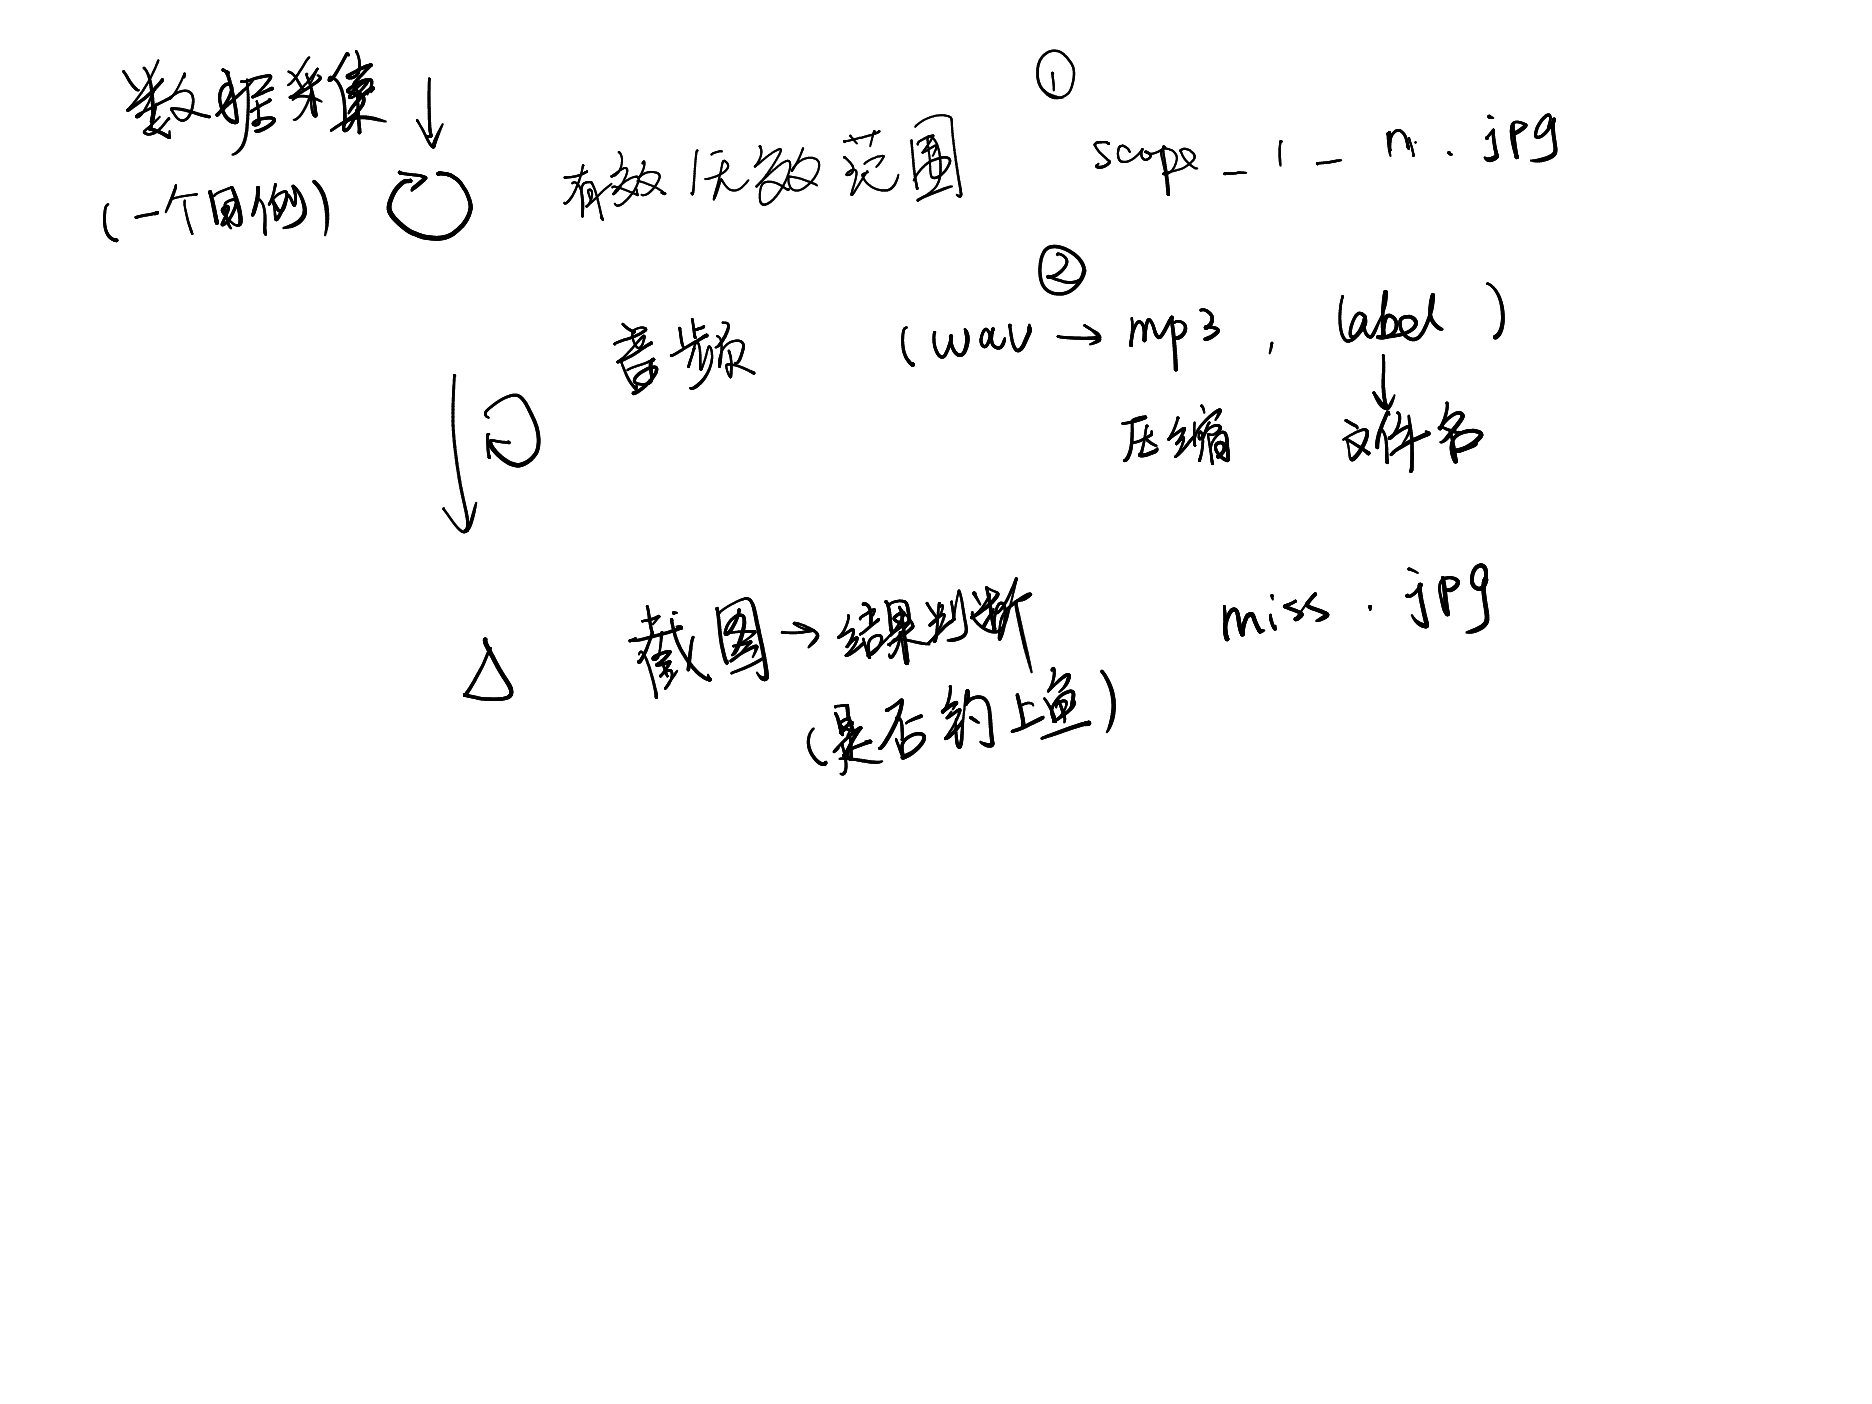 数据采集 ↓
(一个用例)
有效/无效范围
①
scope_1_n.jpg
②
音频 (wav → mp3, label)
压缩 文件名
截图→结果判断 miss.jpg
(是否钓上鱼)